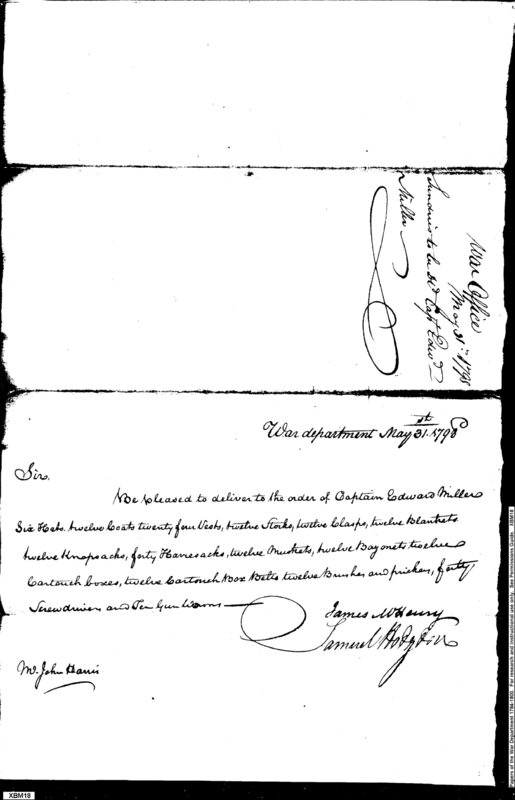 War Office
May 31st 1798
Sundries to be dd Capt Edwd
Miller
War department May 31st 1798
Sir.
Be pleased to deliver to the order of Captain Edward Miller
Six Hats twelve Coats twenty four Vests, twelve Stocks, twelve Clasps, twelve Blankets
twelve Knapsacks, forty Haversacks, twelve Muskets, twelve Bayonets twelve
Cartouch boxes, twelve Cartouch Box Belts twelve Brushes and prickers, forty
Screwdrivers and Ten Gun Worms
James McHenry
Samuel Hodgdon
Mr. John Harris
XBM18
Papers of the War Department 1784-1800. For research and instructional use only. See Permissions Guide. XBM18